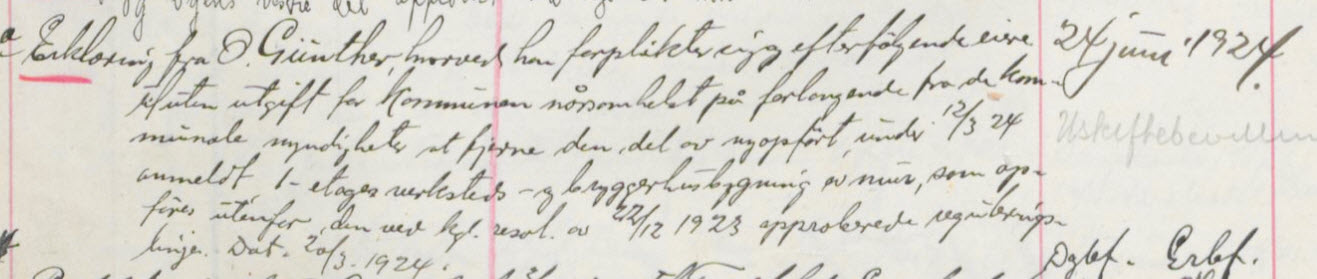 Erklæring fra O. Günther, hvorved han forplikter sig og efterfölgende eiere
til uten utgift for kommunen nårsomhelst på forlangende fra de kom-
munale myndigheter at fjerne den del av nyopfört, under 12/3 24
anmeldt, 1-etages verksteds- og bryggerhusbygning av mur, som op-
föres utenfor den ved kgl. resol. av 22/12 1923 approberede regulerings-
linje. Dat. 20/3. 1924.
24 juni 1924.
Uskiftebevilling
Dgbf. Erbf.